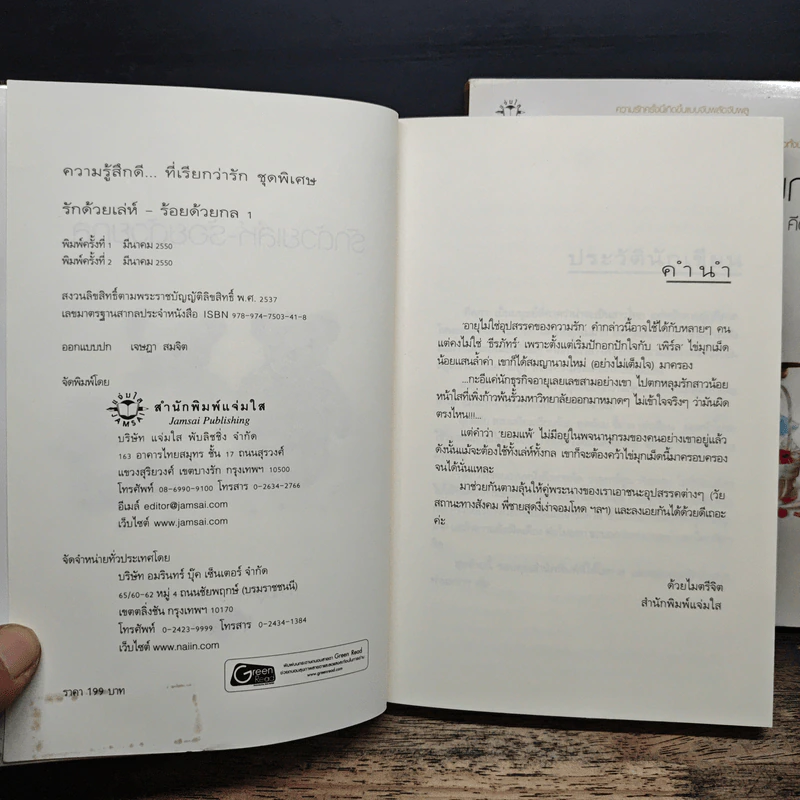 ความรู้สึกดี... ที่เรียกว่ารัก ชุดพิเศษ
รักด้วยเล่ห์ – ร้อยด้วยกล 1
พิมพ์ครั้งที่ 1 มีนาคม 2550
พิมพ์ครั้งที่ 2 มีนาคม 2550
สงวนลิขสิทธิ์ตามพระราชบัญญัติลิขสิทธิ์ พ.ศ. 2537
เลขมาตรฐานสากลประจำหนังสือ ISBN 978-974-7503-41-8
ออกแบบปก เจษฎา สมจิต
จัดพิมพ์โดย
แจ่มใส
JAMSAI
สำนักพิมพ์แจ่มใส
Jamsai Publishing
บริษัท แจ่มใส พับลิชชิ่ง จำกัด
163 อาคารไทยสมุทร ชั้น 17 ถนนสุรวงศ์
แขวงสุริยวงศ์ เขตบางรัก กรุงเทพฯ 10500
โทรศัพท์ 08-6990-9100 โทรสาร 0-2634-2766
อีเมล์ editor@jamsai.com
เว็บไซต์ www.jamsai.com
จัดจำหน่ายทั่วประเทศโดย
บริษัท อมรินทร์ บุ๊ค เซ็นเตอร์ จำกัด
65/60-62 หมู่ 4 ถนนชัยพฤกษ์ (บรมราชชนนี)
เขตตลิ่งชัน กรุงเทพฯ 10170
โทรศัพท์ 0-2423-9999 โทรสาร 0-2434-1384
เว็บไซต์ www.naiin.com
Green Read
www.greenread.com
ราคา 199 บาท
คำนำ
'อายุไม่ใช่อุปสรรคของความรัก' คำกล่าวนี้อาจใช้ได้กับหลายๆ คน
แต่คงไม่ใช่ 'ธีรภัทร์' เพราะตั้งแต่เริ่มปักอกปักใจกับ 'เพิร์ล' ไข่มุกเม็ด
น้อยแสนล้ำค่า เขาก็ได้สมญานามใหม่ (อย่างไม่เต็มใจ) มาครอง
...กะอีแค่นักธุรกิจอายุเลยเลขสามอย่างเขา ไปตกหลุมรักสาวน้อย
หน้าใสที่เพิ่งก้าวพ้นรั้วมหาวิทยาลัยออกมาหมาดๆ ไม่เข้าใจจริงๆ ว่ามันผิด
ตรงไหน!!!...
แต่คำว่า 'ยอมแพ้' ไม่มีอยู่ในพจนานุกรมของคนอย่างเขาอยู่แล้ว
ดังนั้นแม้จะต้องใช้ทั้งเล่ห์ทั้งกล เขาก็จะต้องคว้าไข่มุกเม็ดนี้มาครอบครอง
จนได้นั่นแหละ
มาช่วยกันตามลุ้นให้คู่พระนางของเราเอาชนะอุปสรรคต่างๆ (วัย
สถานะทางสังคม พี่ชายสุดงี่เง่าจอมโหด ฯลฯ) และลงเอยกันได้ด้วยดีเถอะ
ค่ะ
ด้วยไมตรีจิต
สำนักพิมพ์แจ่มใส